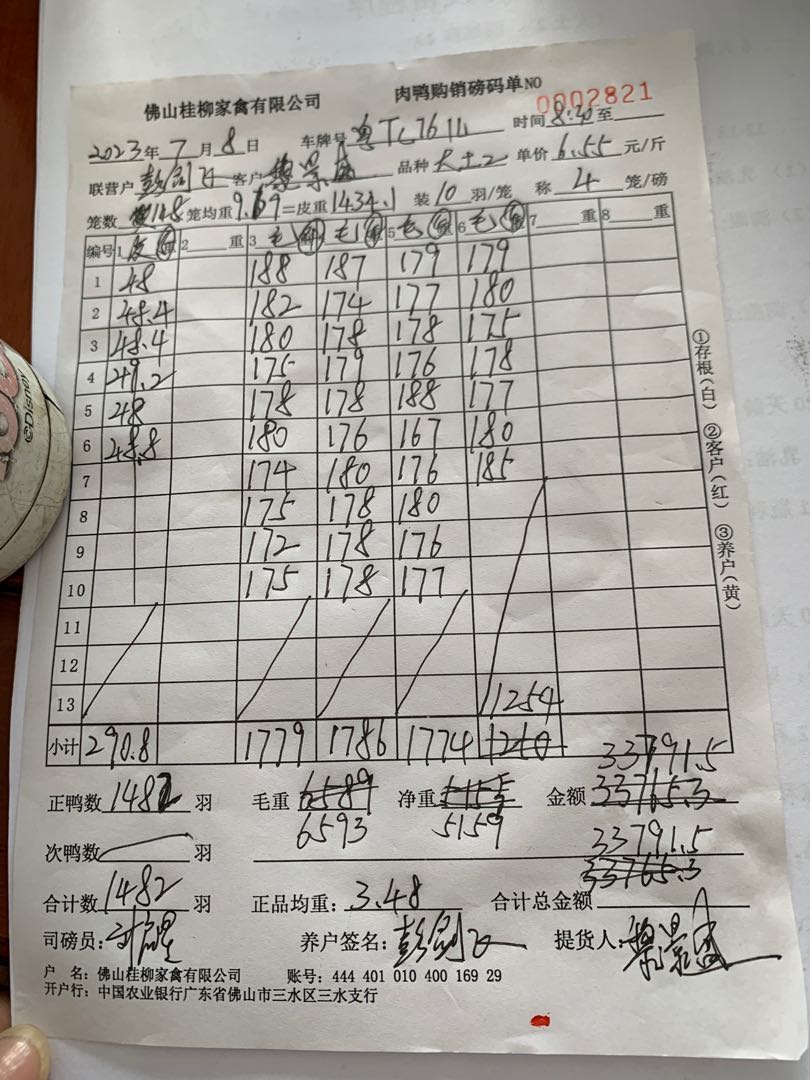 佛山桂柳家禽有限公司 肉鸭购销磅码单 NO 0002821
2023年 7月 8日 车牌号 粤TL761L 时间 8:20 至
联营户 彭剑飞 客户 黎景盛 品种 大土2 单价 6.55 元/斤
笼数 148 × 笼均重 9.69 = 皮重 1434.1 装 10 羽/笼 称 4 笼/磅
编号 1 皮重 2 重 3 毛重 4 毛重 5 毛重 6 毛重 7 重 8 重
1 48 188 187 179 179
2 48.4 182 174 177 180
3 48.4 180 178 178 175
4 49.2 175 179 176 178
5 48 178 178 188 177
6 48.8 180 176 167 180
7 174 180 176 185
8 175 178 180
9 172 178 176
10 175 178 177
11
12
13 1254
小计 290.8 1779 1786 1774 1210
33791.5
正鸭数 1482 羽 毛重 6589 净重 5155 金额 33765.3
6593 5159
次鸭数 羽 33791.5
33765.3
合计数 1482 羽 正品均重: 3.48 合计总金额
司磅员: 养户签名: 彭剑飞 提货人: 黎景盛
户 名: 佛山桂柳家禽有限公司 账号: 444 401 010 400 169 29
开户行: 中国农业银行广东省佛山市三水区三水支行
①存根(白) ②客户(红) ③养户(黄)
©Disney